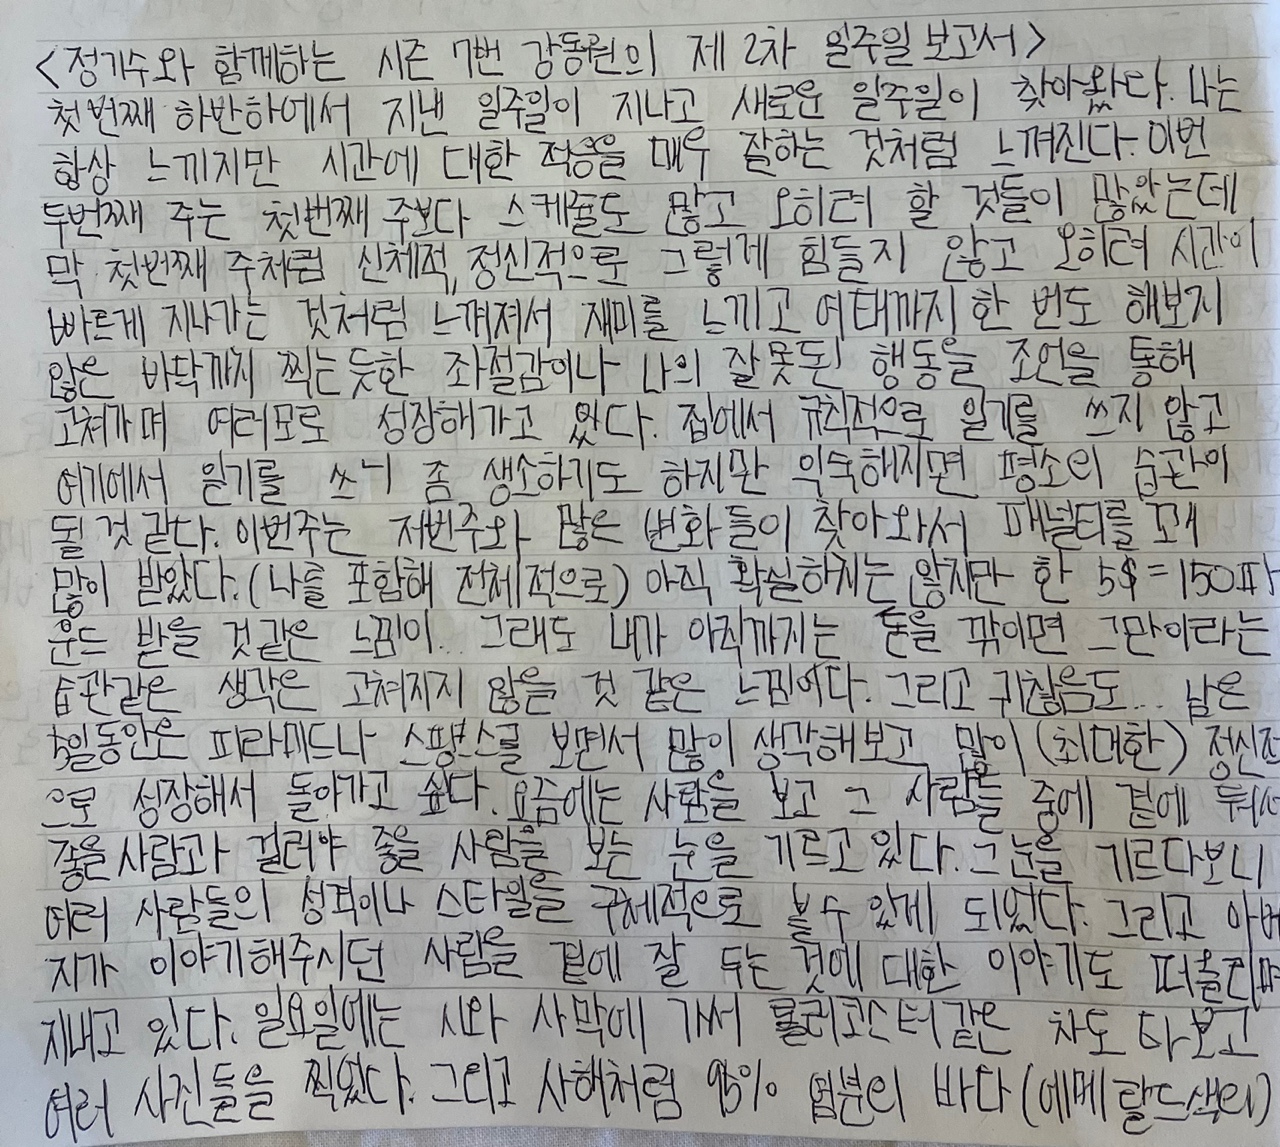 <정기수와 함께하는 시즌 7번 강동련의 제 2차 일주일 보고서>
첫번째 하반하에서 지낸 일주일이 지나고 새로운 일주일이 찾아왔다. 나는
항상 느끼지만 시간에 대한 적응을 매우 잘하는 것처럼 느껴진다. 이번
두번째 주는 첫번째 주보다 스케줄도 많고 오히려 할 것들이 많았는데
막 첫번째 주처럼 신체적, 정신적으로 그렇게 힘들지 않고 오히려 시간이
빠르게 지나가는 것처럼 느껴져서 재미를 느끼고 여태까지 한 번도 해보지
않은 바닥까지 찍는듯한 좌절감이나 나의 잘못된 행동을 조언을 통해
고쳐가며 여러모로 성장해가고 있다. 집에서 규칙적으로 일기를 쓰지 않고
여기에서 일기를 쓰니 좀 생소하기도 하지만 익숙해지면 평소의 습관이
될 것 같다. 이번주는 저번주와 많은 변화들이 찾아와서 패널티를 꼬채
많이 받았다. (나를 포함해 전체적으로) 아직 확실하치는 않지만 한 5$=150파
운드 받을 것같은 느낌이... 그래도 내가 아직까지는 돈을 깎이면 그만이라는
습관같은 생각은 고쳐지지 않을 것 같은 느낌이다. 그리고 귀찮음도... 남은
일동안은 피라미드나 스핑스를 보면서 많이 생각해보고, 많이 (최대한) 정신적
으로 성장해서 돌아가고 싶다. 요즘에는 사람을 보고 그 사람들 중에 곁에 둬서
좋을 사람과 걸러야 좋을 사람을 보는 눈을 기르고 있다. 그 눈을 기르다보니
여러 사람들의 성격이나 스타일을 구체적으로 볼 수 있게 되었다. 그리고 아버
지가 이야기해주시던 사람을 곁에 잘 두는 것에 대한 이야기도 떠올리며
지내고 있다. 일요일에는 시와 사막에 가서 롤러코스터같은 차도 타보고
여러 사진들을 찍었다. 그리고 사해처럼 95% 염분의 바다 (에메랄드색의)